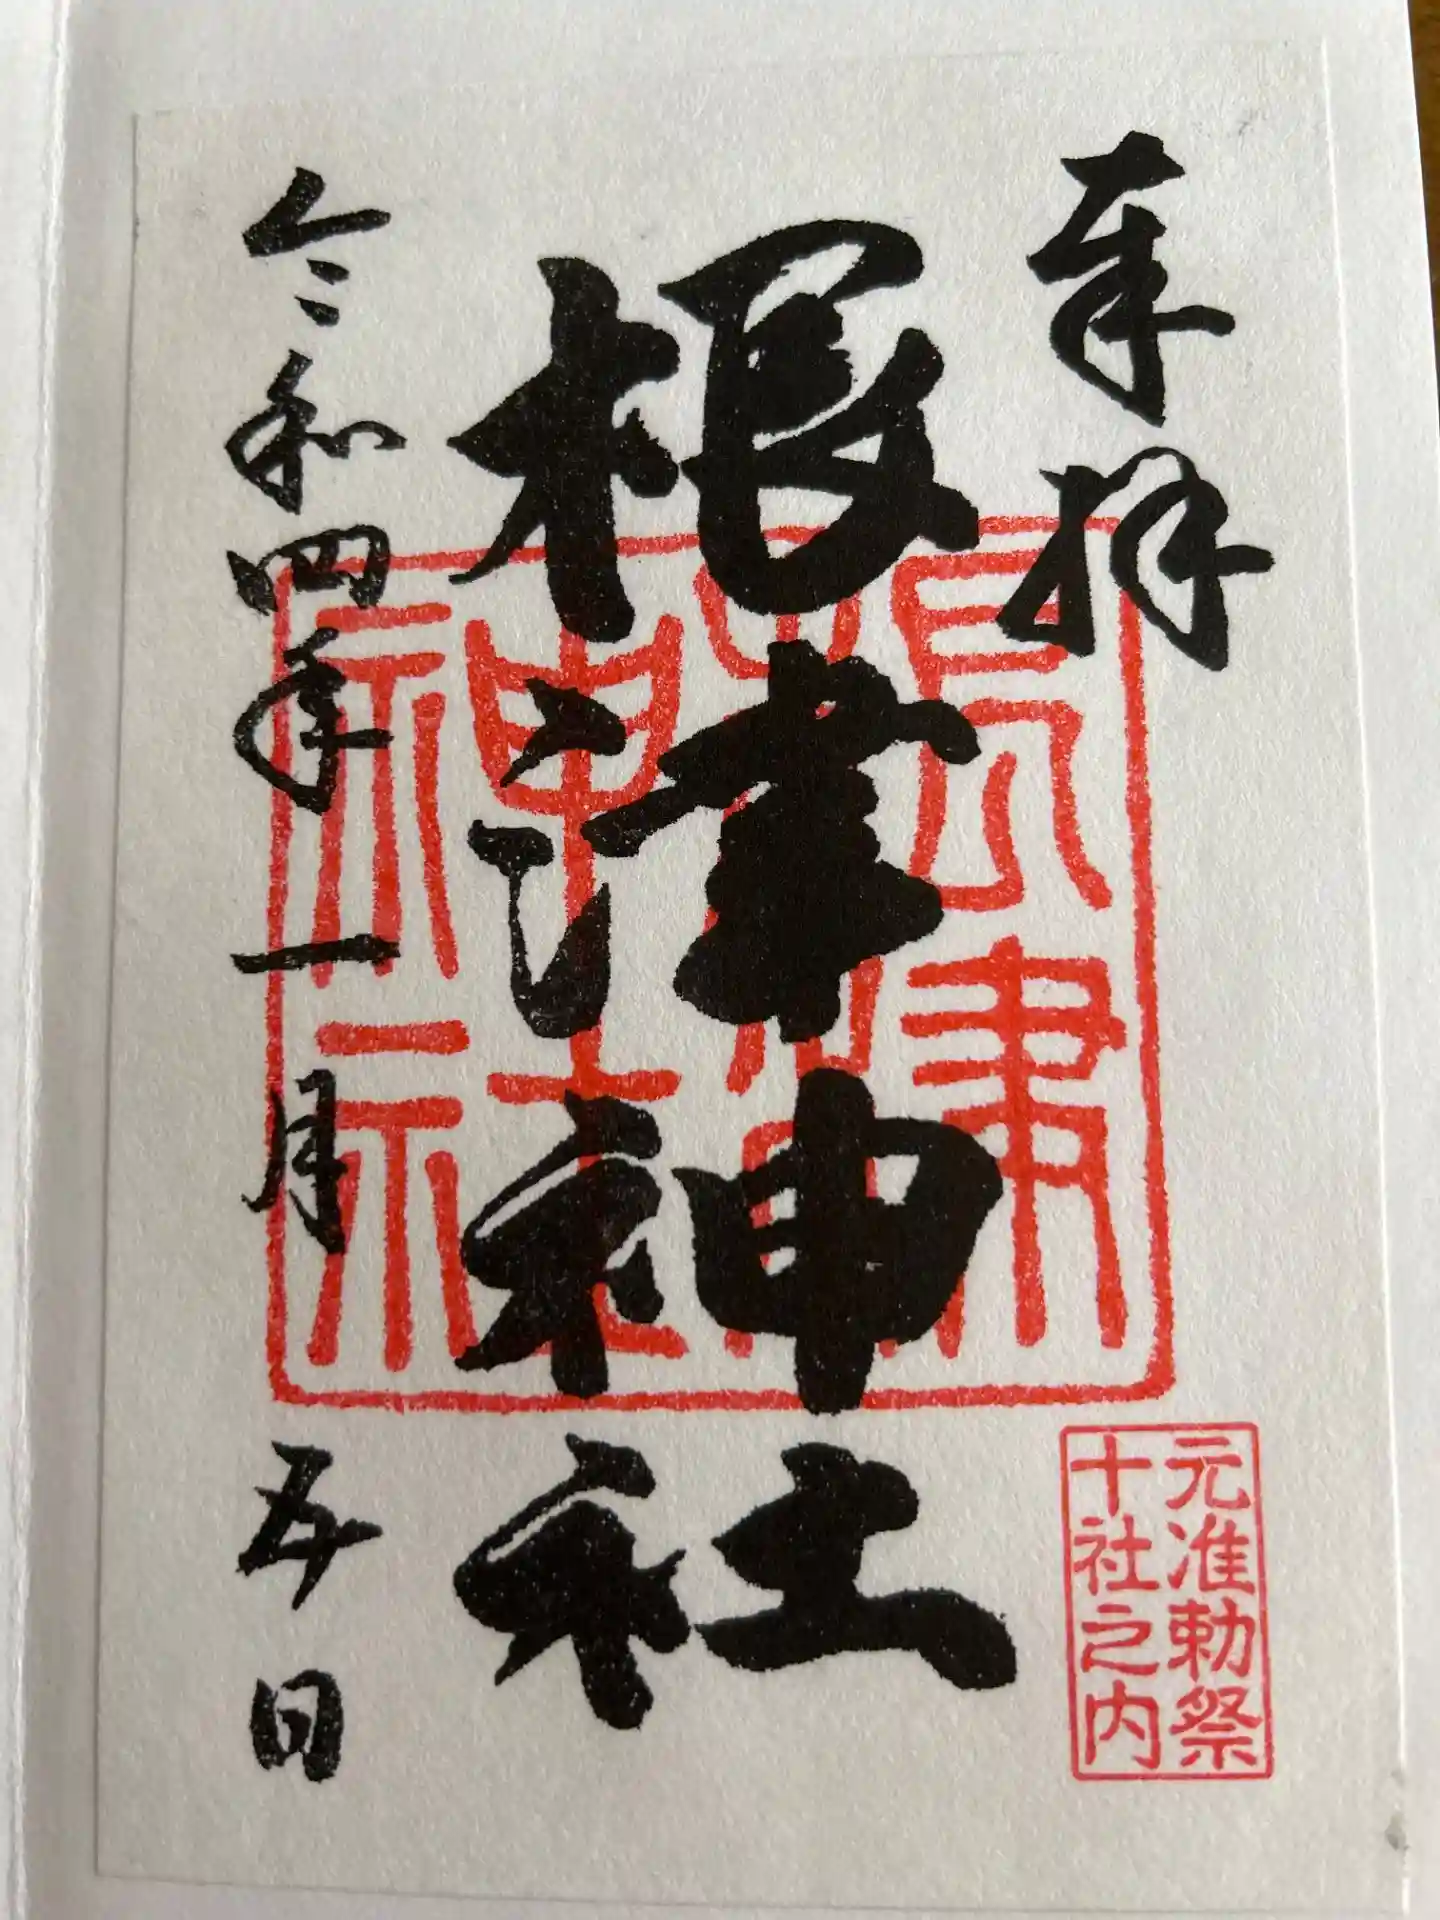 奉拝
根津神社
令和四年一月五日
元准勅祭
十社之内